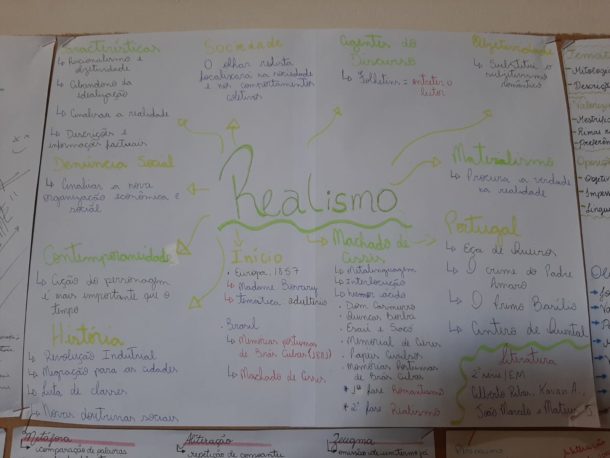 Características
↳ Racionalismo e
objetividade
↳ Abandono da
idealização
↳ Analisar a realidade
↳ Descrições e
informações factuais
Sociedade
O olhar realista
focalizava na sociedade
e nos comportamentos
coletivos
Agentes do
Discurso
↳ Folhetins = entreter o
leitor
Objetividade
↳ Substitui o
subjetivismo
romântico
Denúncia Social
↳ Analisar a nova
organização econômica e
social
Realismo
Materialismo
↳ Procura a verdade
na realidade
Contemporaneidade
↳ Ação do personagem
é mais importante que o
tempo
História
↳ Revolução Industrial
↳ Migração para as cidades
↳ Luta de classes
↳ Novas doutrinas sociais
Início
• Europa, 1857
↳ Madame Bovary
↳ temática adultério
• Brasil
↳ Memórias póstumas
de Brás Cubas
↳ Machado de Assis
↳ Machado de
Assis
↳ Metalinguagem
↳ Interlocução
↳ humor ácido
• Dom Casmurro
• Quincas Borba
• Esaú e Jacó
• Memorial de Aires
• Papéis Avulsos
• Memórias Póstumas
de Brás Cubas
* 1ª fase Romantismo
* 2ª fase Realismo
Portugal
↳ Eça de Queiros
↳ O crime do Padre
Amaro
↳ O Primo Basílio
↳ Antero de Quental
Literatura
2ª série/EM
João Macedo e Mateus
Metáfora
↳ comparação de palavras
Aliteração
↳ repetição de consoantes
Zeugma